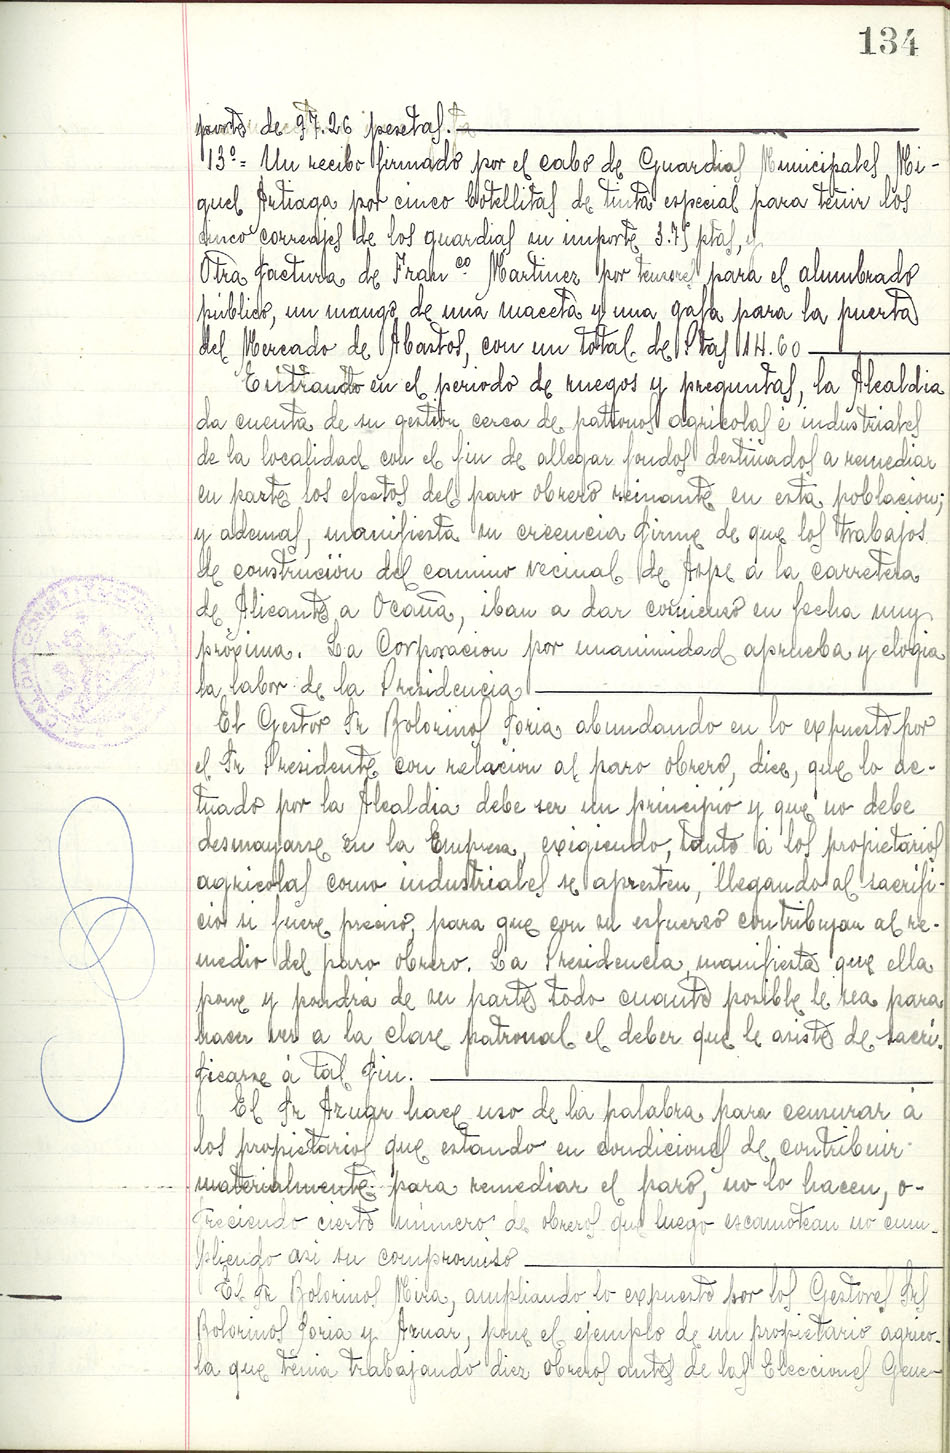 134
porte de 97.26 pesetas.
13º = Un recibo firmado por el cabo de Guardias Municipales Mi-
guel Artiaga por cinco botellitas de tinta especial para teñir los
cinco correajes de los guardias su importe 3.75 ptas, y
Otra factura de Fran co Martinez por para el alumbrado
público, un mango de una maceta y una gafa para la puerta
del Mercado de Abastos, con un total de Ptas 14.60
Entrando en el periodo de ruegos y preguntas, la Alcaldia
da cuenta de su gestión cerca de patronos agricolas é industriales
de la localidad con el fin de allegar fondos destinados a remediar
en parte los efectos del paro obrero reinante en esta poblacion;
y ademas, manifiesta su creencia firme de que los trabajos
de construción del camino vecinal de Aspe a la carretera
de Alicante a Ocaña, iban a dar comienzo en fecha muy
proxima. La Corporacion por unanimidad aprueba y elogia
la labor de la Presidencia
El Gestor Sr Bolorinos Soria abundando en lo expuesto por
el Sr Presidente con relacion al paro obrero, dice, que lo ac-
tuado por la Alcaldia debe ser un principio y que no debe
desmayarse en la Empresa, exigiendo, tanto á los propietarios
agricolas como industriales se apresten, llegando al sacrifi-
cio si fuere preciso, para que con su esfuerzo contribuyan al re-
medio del paro obrero. La Presidencia, manifiesta que ella
pone y pondrá de su parte todo cuanto posible le sea para
hacer ver a la clase patronal el deber que le asiste de sacri-
ficarse á tal fin.
El Sr Aznar hace uso de la palabra para censurar á
los propietarios que estando en condiciones de contribuir
materialmente para remediar el paro, no lo hacen, o-
freciendo cierto número de obreros que luego escamotean no cum-
pliendo asi su compromiso
El Sr Bolorinos Mira, ampliando lo expuesto por los Gestores Srs
Bolorinos Soria y Aznar, pone el ejemplo de un propietario agrico-
la que tenia trabajando diez obreros antes de las Elecciones Gene-